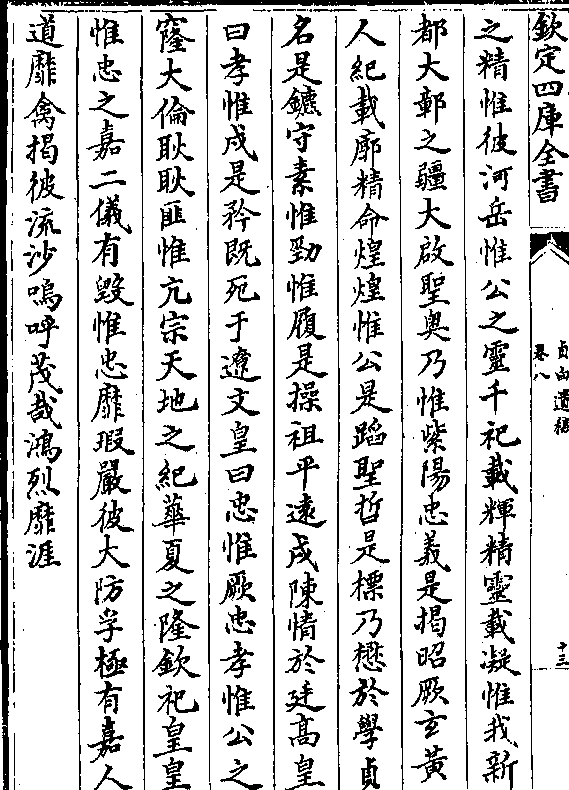 欽定四庫全書
貞白遺稿
卷八
十三
之精惟彼河岳惟公之靈千祀載輝精靈載凝惟我新
都大鄣之疆大啟聖奥乃惟紫陽忠義是揭昭厥玄黃
人紀載廓精命煌煌惟公是蹈聖哲是標乃懋於學貞
名是鑣守素惟勁惟履是操祖平逺戍陳情於廷髙皇
曰孝惟戍是矜既死于遼文皇曰忠惟厥忠孝惟公之
窿大倫耿耿匪惟亢宗天地之紀華夏之隆欽祀皇皇
惟忠之嘉二儀有毀惟忠靡瑕嚴彼大防孚極有嘉人
道靡禽揭彼流沙嗚呼茂哉鴻烈靡涯